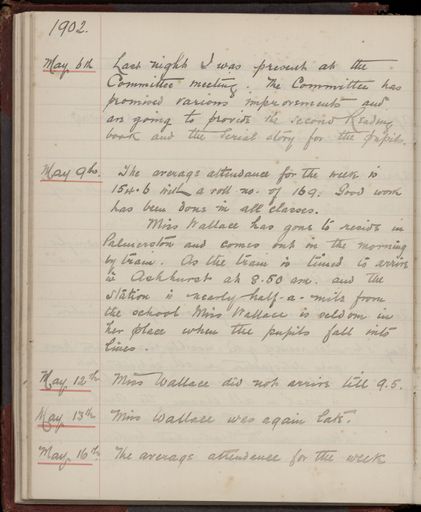 1902.
May 6th Last night I was present at the
Committee meeting. The Committee has
promised various improvements and
are going to provide the second Reading
book and the serial story for the pupils.
May 9th. The average attendance for the week is
154.6 with a roll no. of 169. Good work
has been done in all classes.
Miss Wallace has gone to reside in
Palmerston and comes out in the morning
by train. As the train is timed to arrive
in Ashhurst at 8.50 am. and the
Station is nearly half-a-mile from
the school Miss Wallace is seldom in
her place when the pupils fall into
lines.
May 12th Miss Wallace did not arrive till 9.5.
May 13th Miss Wallace was again late.
May 16th The average attendance for the week